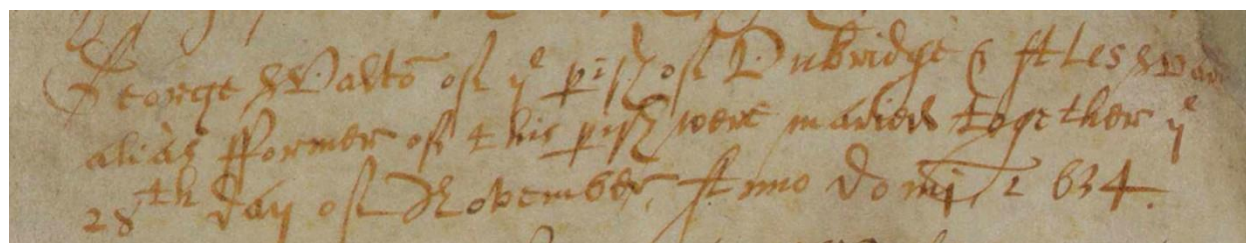 George Walto of ye pish of Dubridge & Ales War
alias fformer of this pish were maried together ye
28th day of November. Anno domi 1634.